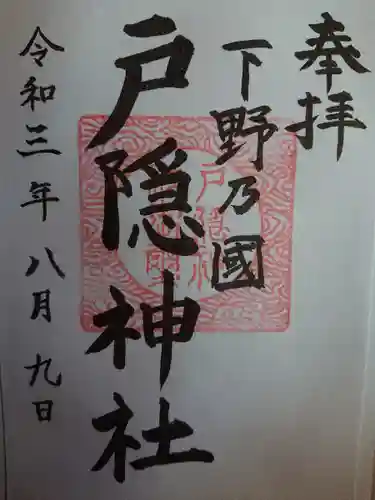 奉拝
下野乃國
戸隠神社
令和三年八月九日